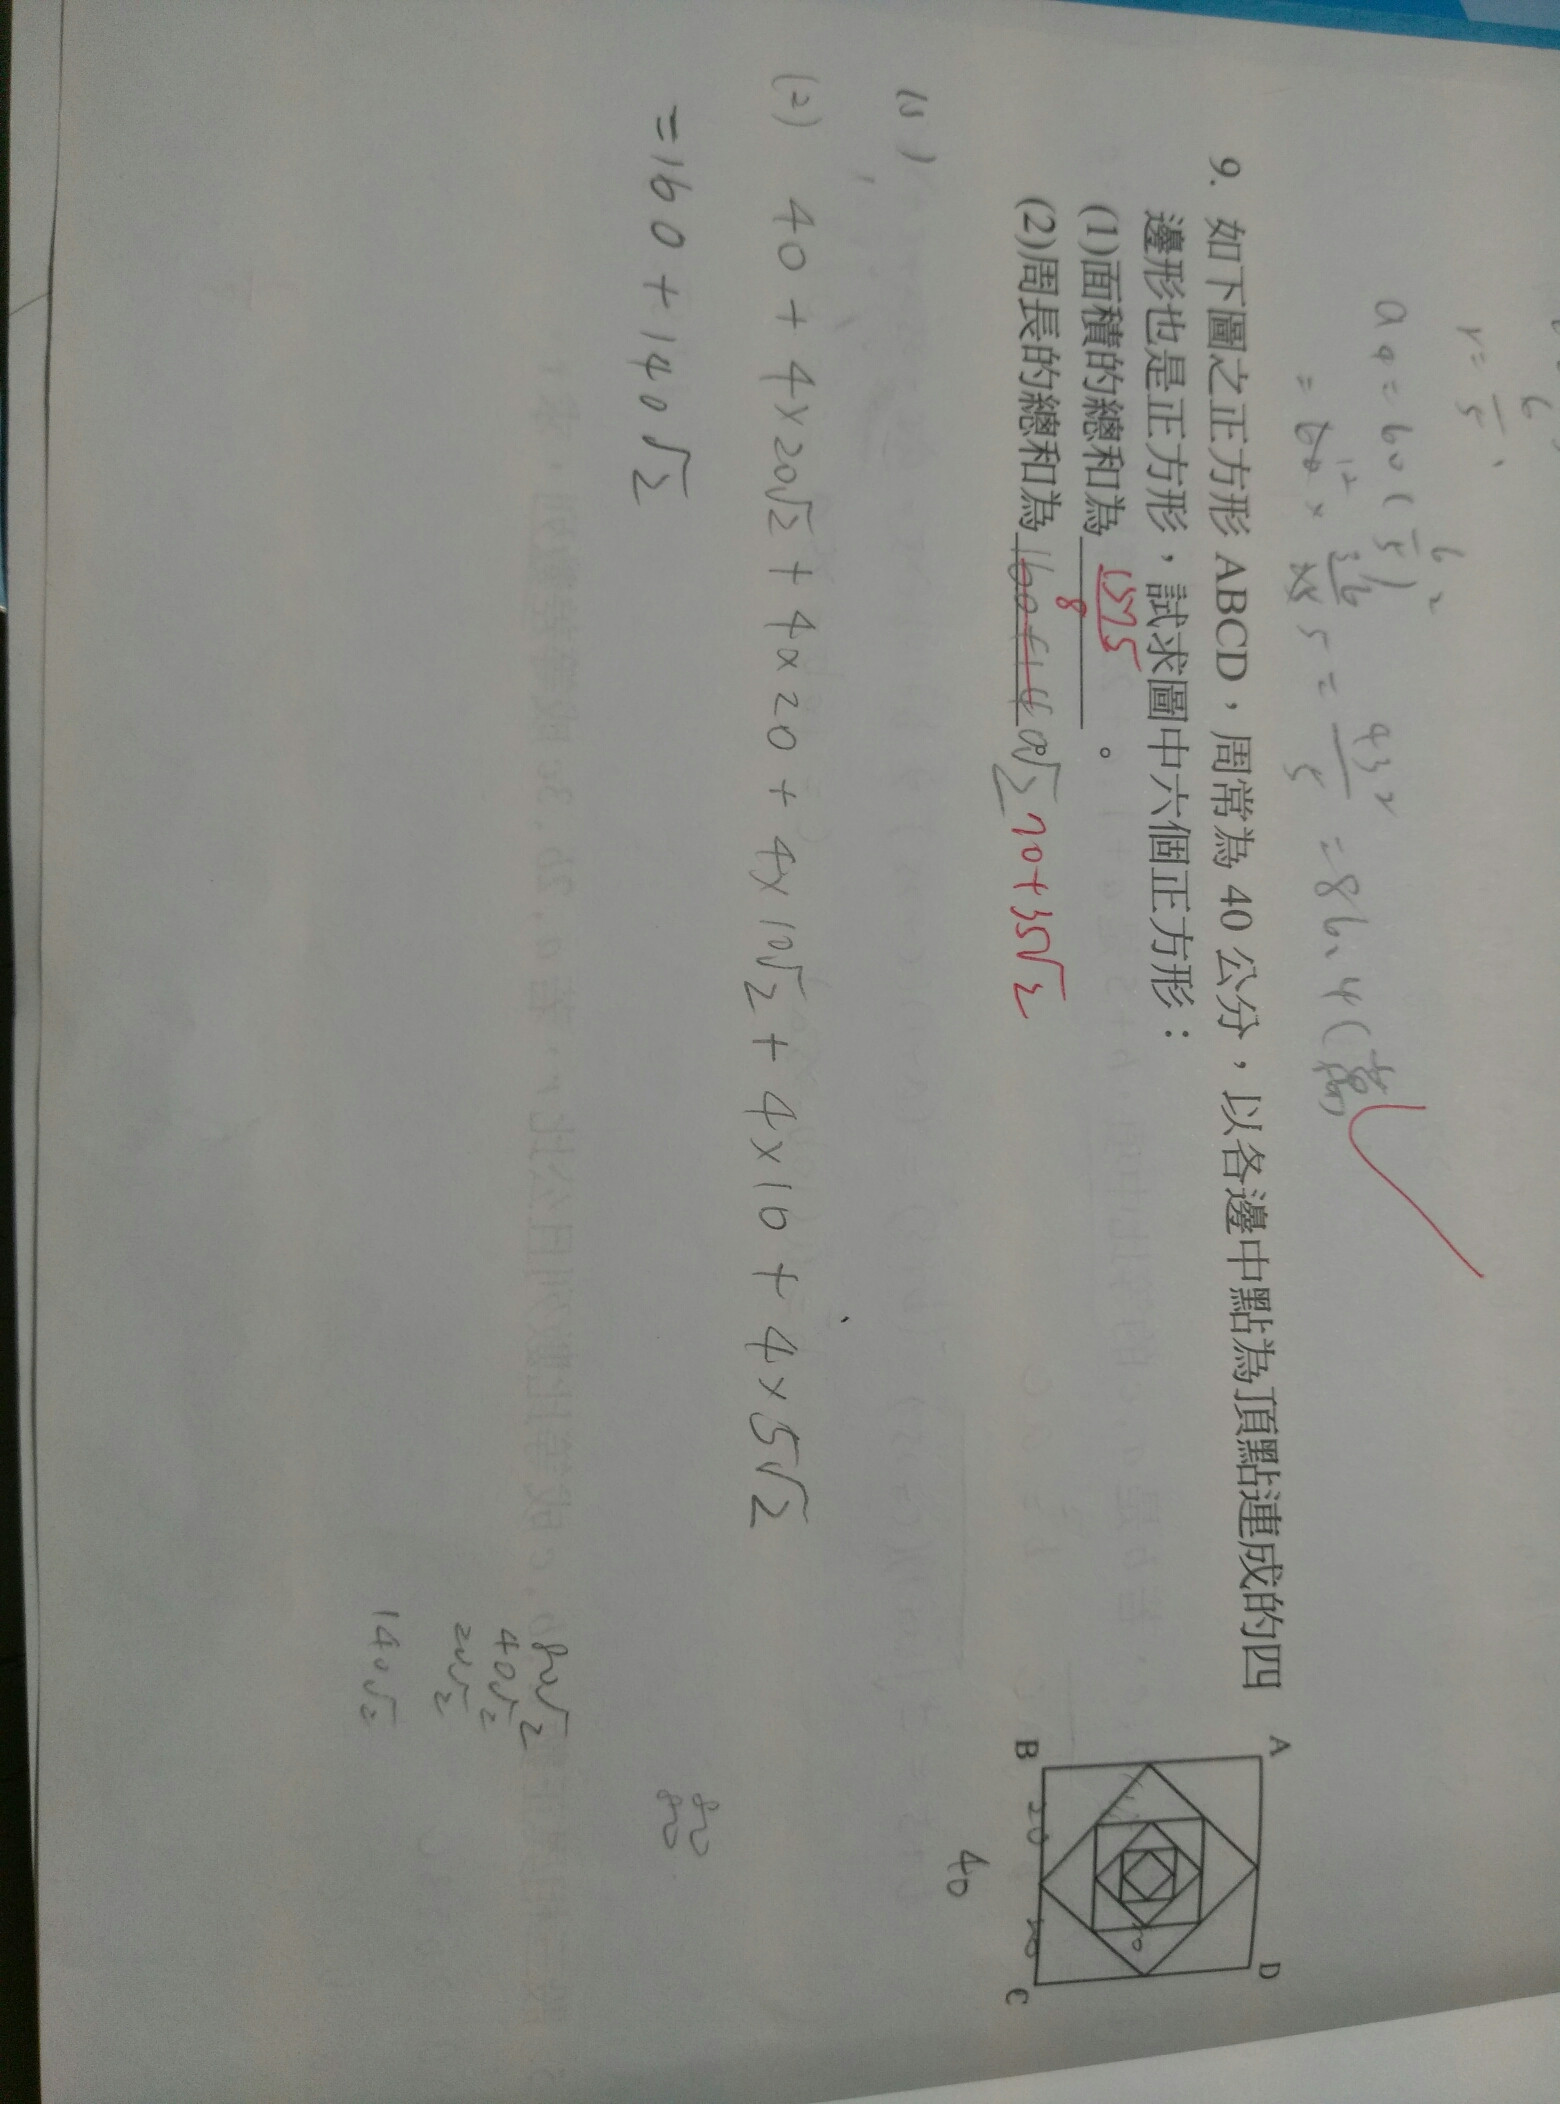 r = 6/5
a₉ = 60 ( 6/5 )²
= 60 × 36/25 = 432/5 = 86.4 (萬)
9. 如下圖之正方形 ABCD，周常為 40 公分，以各邊中點為頂點連成的四
邊形也是正方形，試求圖中六個正方形：
(1)面積的總和為 1575/8 。
(2)周長的總和為 160+140√2 70+35√2
A
D
B
C
20
20
10
40
(1)
(2) 40 + 4×20√2 + 4×20 + 4×10√2 + 4×10 + 4×5√2
= 160 + 140√2
80
80
80√2
40√2
20√2
140√2